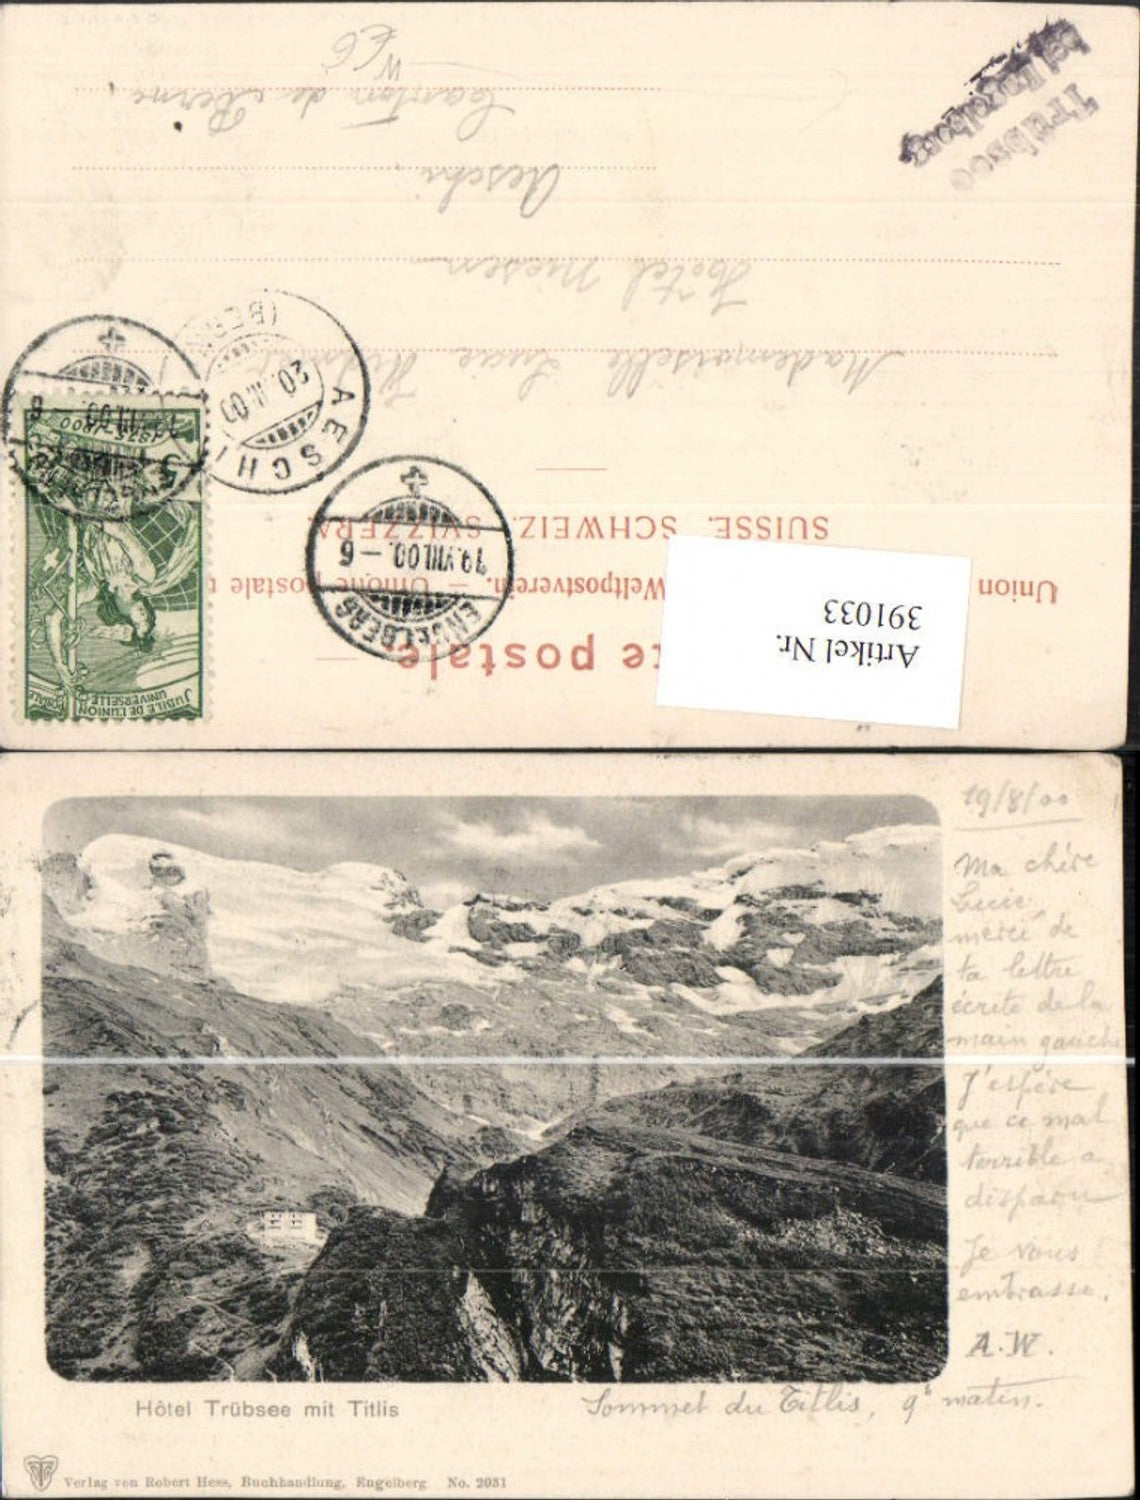 Carte postale
Union postale universelle. — Weltpostverein. — Unione postale
SUISSE. SCHWEIZ. SVIZZERA.
Artikel Nr.
391033
Mademoiselle Lucie
Hôtel Niesen
Aeschi
Canton de Berne
Trübsee
bei Engelberg
JUBILÉ DE L'UNION
UNIVERSELLE POSTALE
1875-1900
5
ENGELBERG
19.VIII.00.–6
ENGELBERG
19.VIII.00.–6
AESCHI (BERN)
20.VIII.00
19/8/00
Ma chère
Lucie,
merci de
ta lettre
écrite de la
main gauche
J'espère
que ce mal
terrible a
disparu
Je vous
embrasse.
A.W.
Sommet du Titlis, 9h matin.
Hôtel Trübsee mit Titlis
Verlag von Robert Hess, Buchhandlung, Engelberg No. 2031